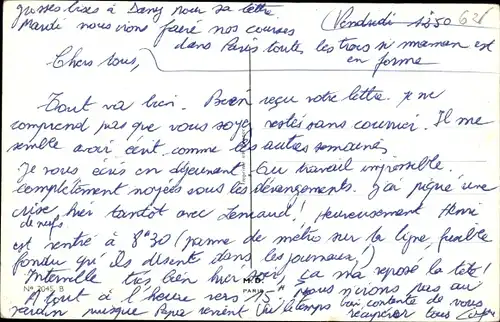 grosses bises à Dany pour sa lettre.
Mardi nous irons faire nos courses
dans Paris toutes les trois si maman est
en forme
Vendredi 12h50
62
Chers tous,
Tout va bien. Bien reçu votre lettre. je ne
comprend pas que vous soyez restés sans courrier. Il me
semble avoir écrit comme les autres semaines.
Je vous écris en déjeunant. Au travail impossible.
complètement noyées sous les dérangements. J'ai piqué une
crise hier tantôt avec Lemaud! Heureusement Henri
de nerfs
est rentré à 8h30 (panne de métro sur la ligne, fusible
fondu qu'ils disent dans les journaux!)
Interville très bien hier soir, ça ma reposé la tête!
A tout à l'heure vers 15h nous n'irons pas au
jardin puisque Papa revient vu le temps bai contente de vous
récupérer tous
N° 7045 B
M.D.
PARIS